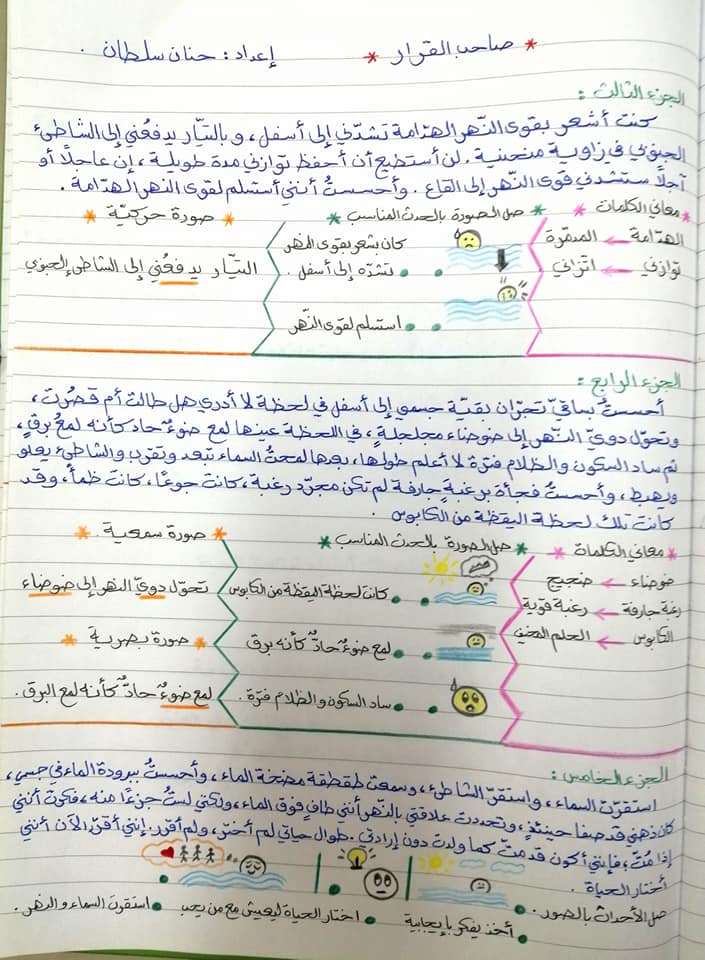 * صاحب القرار * إعداد : حنان سلطان .
الجزء الثالث :
كنت أشعر بقوى النّهر الهدّامة تشدّني إلى أسفل ، و بالتيّار يدفعُني إلى الشاطىء
الجنوبي في زاوية منحنية . لن أستطيع أن أحفظ توازني مدة طويلة ، إن عاجلًا أو
آجلًا ستشدني قوى النّهر إلى القاع . وأحسستُ أنني أستسلم لقوى النهر الهدّامة .
* معاني الكلمات * صل الصورة بالحدث المناسب * * صورة حركيّة *
الهدّامة ← المدمّرة
توازني ← اتزاني
كان يشعر بقوى النهر
تشدّه إلى أسفل .
استسلم لقوى النّهر
التيّار يدفعُني إلى الشاطىء الجنوبي
الجزء الرابع :
أحسستُ بساقيّ تجرّان بقيّة جسمي إلى أسفل في لحظة لا أدري هل طالت أم قصُرت ،
وتحوّل دويّ النّهر إلى ضوضاء مجلجلةٍ ، في اللحظة عينها لمع ضوءٌ حادّ كأنه لمعُ برقٍ ،
ثم ساد السكون والظلام فترة لا أعلم طولها ، بعدها لمحتُ السماء تبعد وتقرب والشاطىء يعلو
ويهبط ، وأحسستُ فجأة برغبةٍ جارفة لم تكن مجرّد رغبة ، كانت جوعًا ، كانت ظمأً ، وقد
كانت تلك لحظة اليقظة من الكابوس .
* معاني الكلمات * صل الصورة بالحدث المناسب * * صورة سمعية . *
ضوضاء ← ضجيج
رغبة جارفة ← رغبة قوية
الكابوس ← الحلم المخيف
كانت لحظة اليقظة من الكابوس
لمع ضوءٌ حادٌّ كأنه برق
ساد السكون والظلام فترة .
تحوّل دويّ النهر إلى ضوضاء
* صورة بصرية *
لمع ضوءٌ حادٌّ كأنه لمع البرق .
الجزء الخامس :
استقرّت السماء ، واستقرّ الشاطىء ، وسمعت طقطقة مضخة الماء ، وأحسستُ ببرودة الماء في جسمي ،
كان ذهني قد صفا حينئذٍ ، وتحددت علاقتي بالنّهر أنني طافٍ فوق الماء ، ولكني لستُ جزءًا منه ، فكرت أنني
إذا مُتّ ، فإنني أكون قد متّ كما ولدت دون إرادتي . طوال حياتي لم أختر ، ولم أقرر . إنني أقرّر الآن أنني
أختار الحياة .
صل الأحداث بالصور .
أخذ يفكر بإيجابية
اختار الحياة ليعيش مع من يحب
استقرت السماء والنهر .